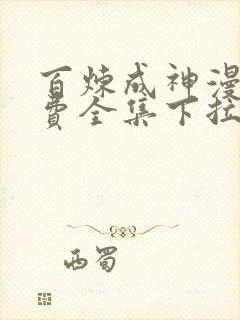 百炼成神漫
费全集下拉
西蜀